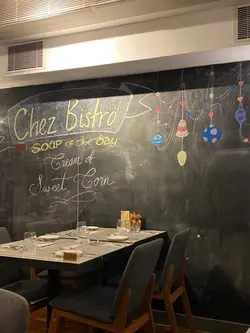 Chez Bistro
SOUP OF THE DAY
Cream of
Sweet Corn